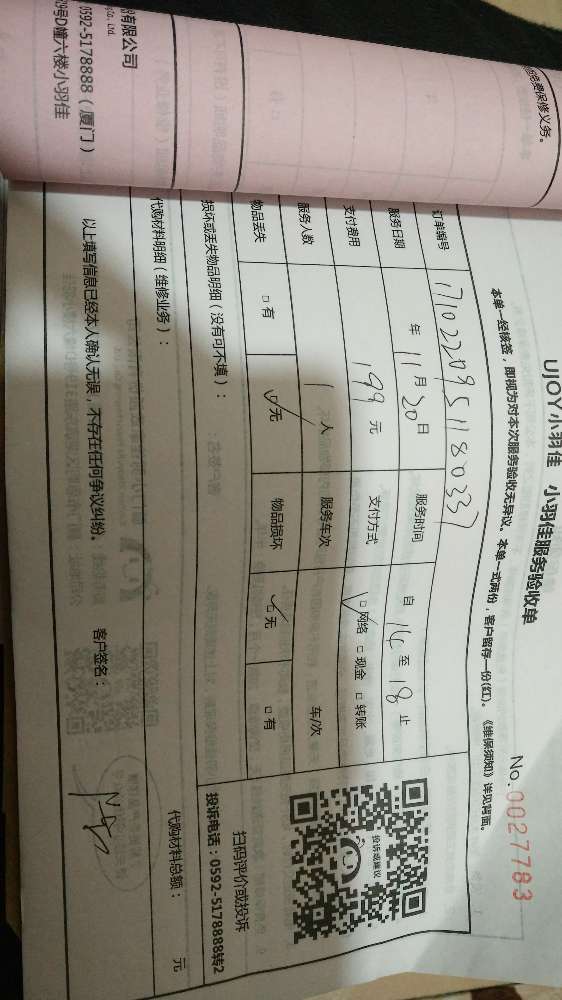 UJOY小羽佳 小羽佳服务验收单
No.0027783
本单一经核签，即视为对本次服务验收无异议。本单一式两份，客户留存一份(红)。《维保须知》详见背面。
订单编号 1710220951180337
服务日期 年 11月20日 服务时间 自 14 至 18 止
支付费用 199 元 支付方式 ☑网络 □现金 □转账
服务人数 1 人 服务车次 车/次
物品丢失 □有 ☑无 物品损坏 ☑无 □有
损坏或丢失物品明细（没有可不填）：
代购材料明细（维修业务）：
代购材料总额： 元
以上填写信息已经本人确认无误，不存在任何争议纠纷。 客户签名：
投诉或建议
扫码评价或投诉
投诉电话：0592-5178888转2
免费保修义务。
有限公司
Co., Ltd.
0592-5178888（厦门）
号D幢六楼小羽佳